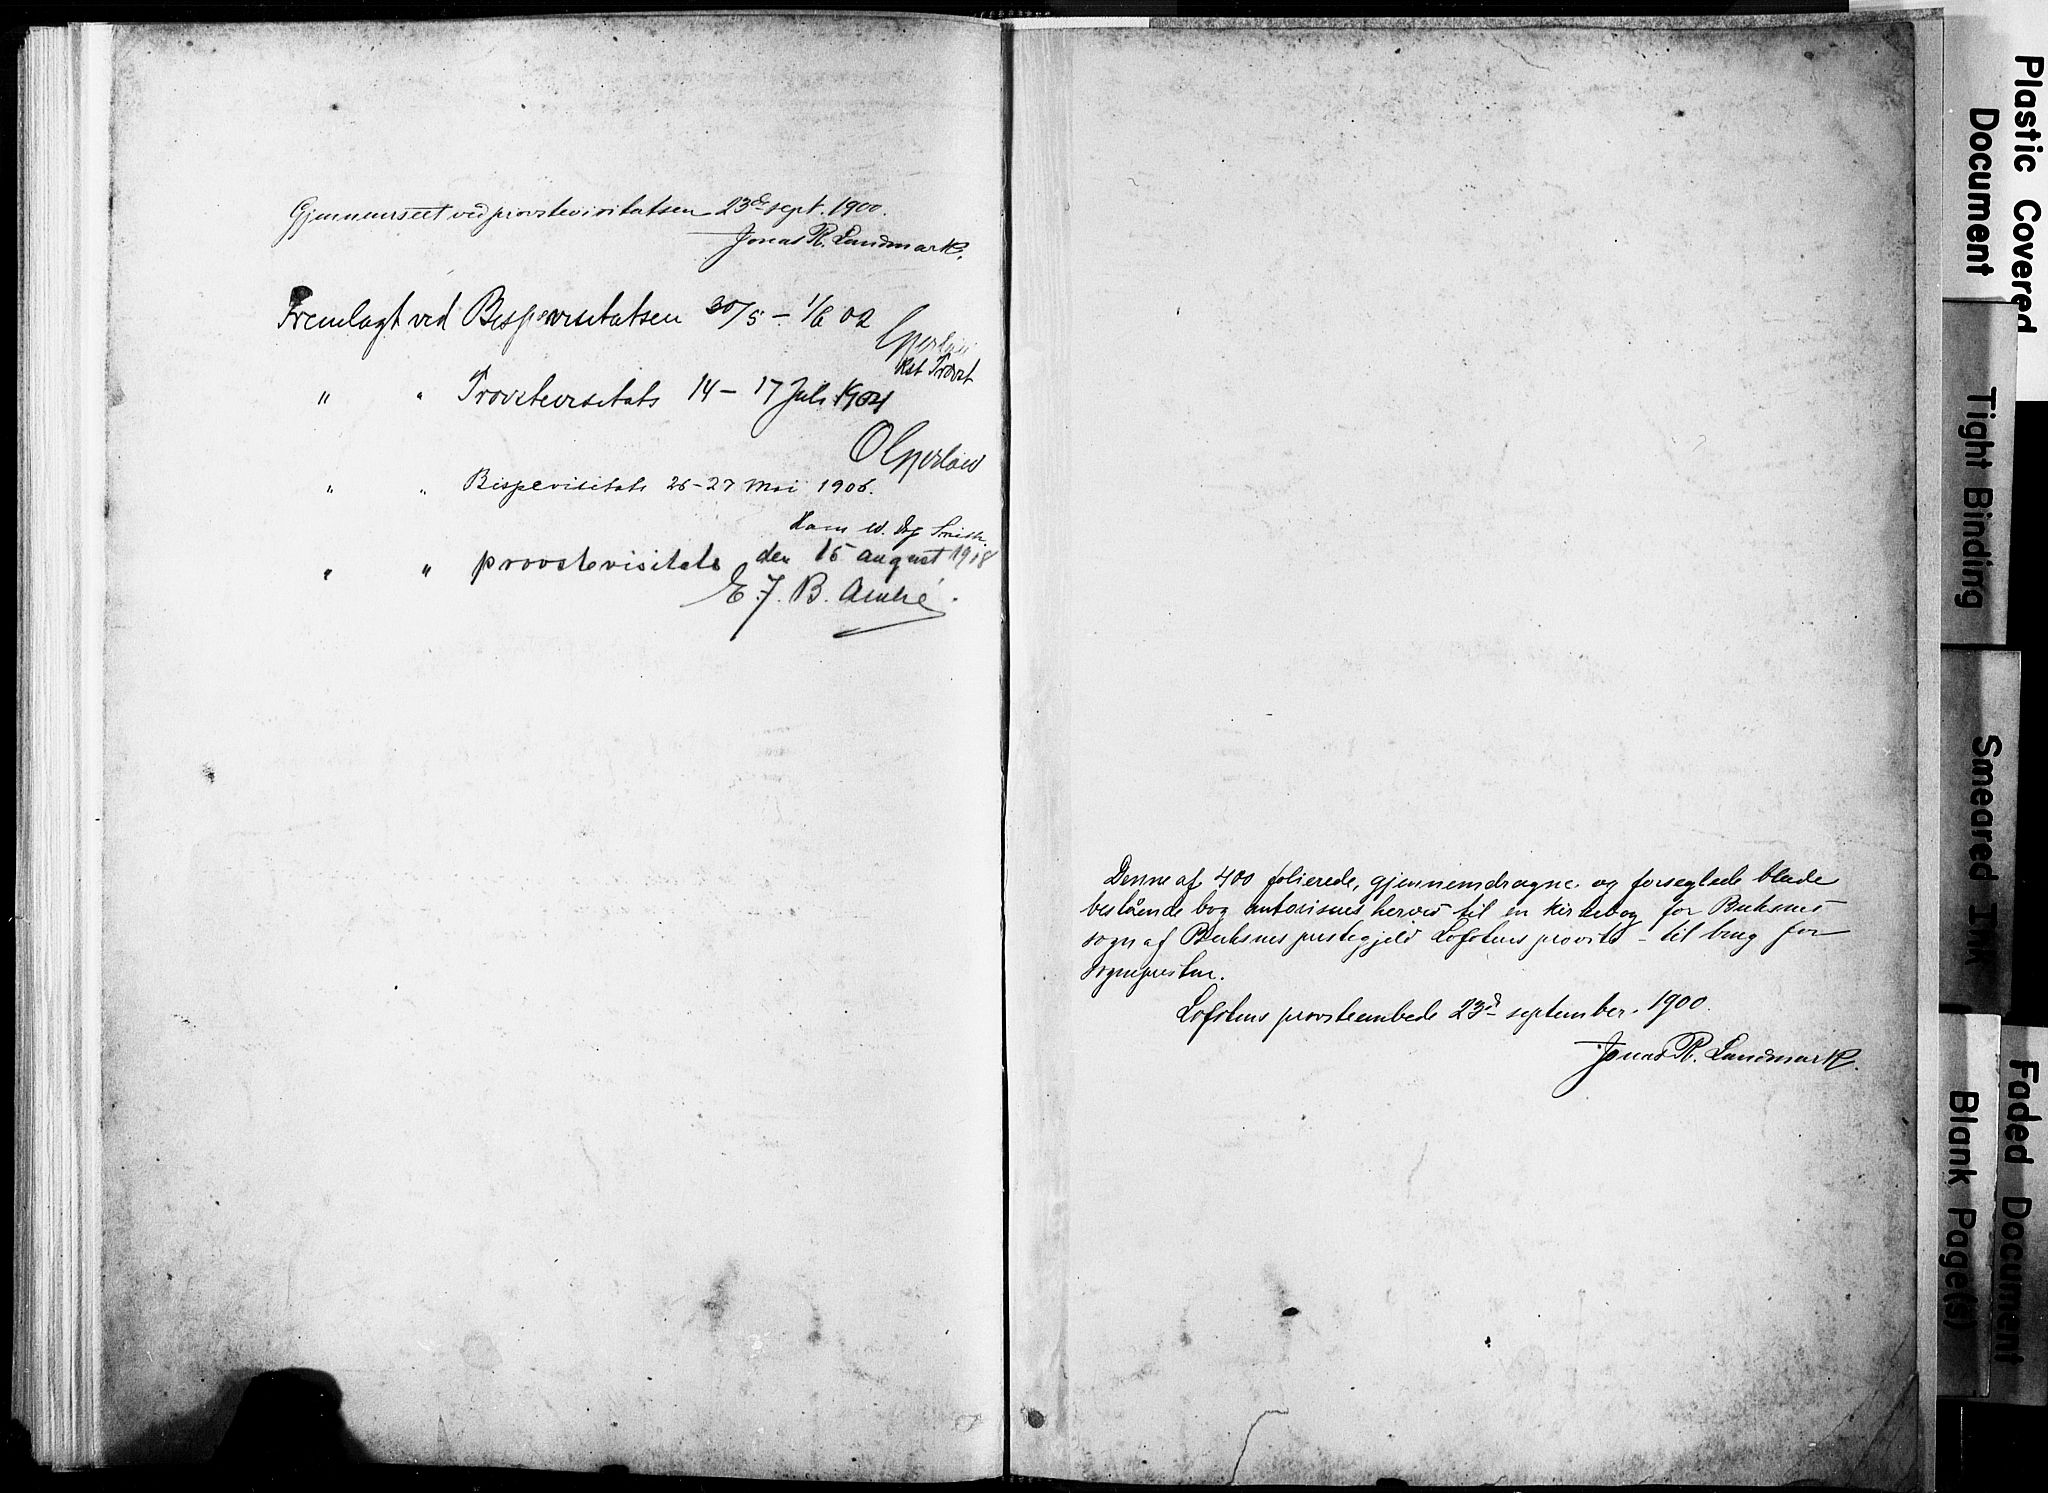 Gjennemseet ved provstevisitatsen 23de sept. 1900.
Jonas R. Landmark.
Fremlagt ved Bispevisitatsen 30/5 – 1/6 02
Kst Provst
" " Provstevisitats 14 – 17 Juli 1904
" " Bispevisitats 26-27 Mai 1906.
" " provstevisitats den 15 august 1918
E. F. B. André.
Denne af 400 folierede, gjennemdragne og forseglede blade
bestående bog autoriseres herved til en kirkebog for Buksnes
sogn af Buksnes prestegjeld Lofotens provsti – til brug for
sognepresten.
Lofotens provsteembede 23d september 1900.
Jonas R. Landmark.
Plastic Covered
Document
Tight Binding
Smeared Ink
Faded Document
Blank Page(s)